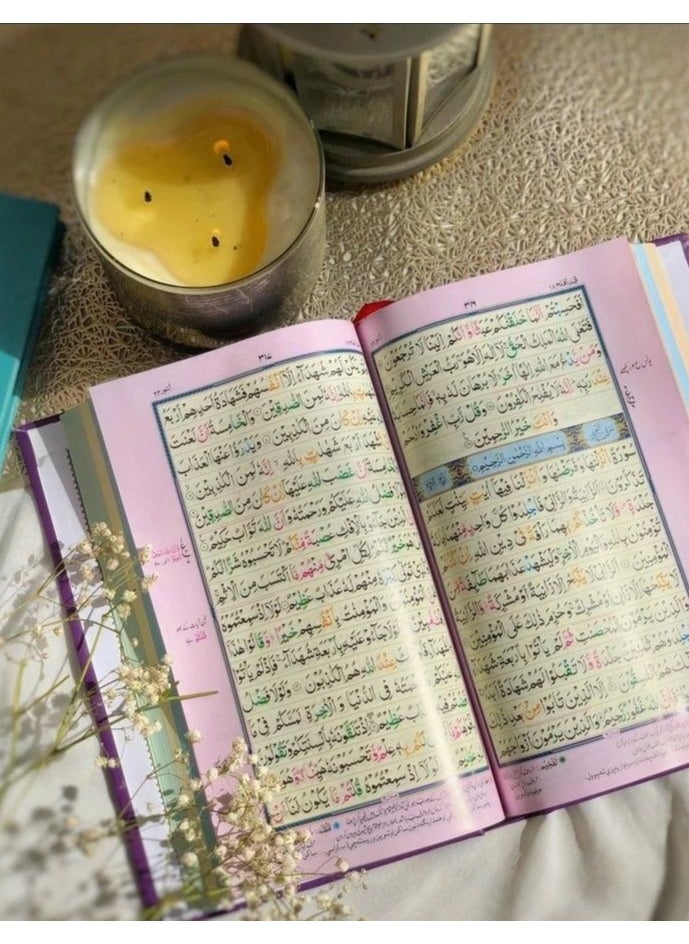 ٣١٦
أَفَحَسِبْتُمْ أَنَّمَا خَلَقْنٰكُمْ عَبَثًا وَّاَنَّكُمْ اِلَيْنَا لَا تُرْجَعُوْنَ
فَتَعٰلَى اللّٰهُ الْمَلِكُ الْحَقُّ لَآ اِلٰهَ اِلَّا هُوَ رَبُّ الْعَرْشِ الْكَرِيْمِ
وَمَنْ يَّدْعُ مَعَ اللّٰهِ اِلٰهًا اٰخَرَ لَا بُرْهَانَ لَهٗ بِهٖ فَاِنَّمَا حِسَابُهٗ
عِنْدَ رَبِّهٖ اِنَّهٗ لَا يُفْلِحُ الْكٰفِرُوْنَ وَقُلْ رَّبِّ اغْفِرْ وَارْحَمْ
وَاَنْتَ خَيْرُ الرّٰحِمِيْنَ
بِسْمِ اللّٰهِ الرَّحْمٰنِ الرَّحِيْمِ
سُوْرَةٌ اَنْزَلْنٰهَا وَفَرَضْنٰهَا وَاَنْزَلْنَا فِيْهَآ اٰيٰتٍۭ بَيِّنٰتٍ لَّعَلَّكُمْ
تَذَكَّرُوْنَ اَلزَّانِيَةُ وَالزَّانِيْ فَاجْلِدُوْا كُلَّ وَاحِدٍ مِّنْهُمَا مِائَةَ
جَلْدَةٍ وَّلَا تَاْخُذْكُمْ بِهِمَا رَاْفَةٌ فِيْ دِيْنِ اللّٰهِ اِنْ كُنْتُمْ
تُؤْمِنُوْنَ بِاللّٰهِ وَالْيَوْمِ الْاٰخِرِ وَلْيَشْهَدْ عَذَابَهُمَا طَآئِفَةٌ مِّنَ
الْمُؤْمِنِيْنَ اَلزَّانِيْ لَا يَنْكِحُ اِلَّا زَانِيَةً اَوْ مُشْرِكَةً وَّالزَّانِيَةُ
لَا يَنْكِحُهَآ اِلَّا زَانٍ اَوْ مُشْرِكٌ وَحُرِّمَ ذٰلِكَ عَلَى الْمُؤْمِنِيْنَ
وَالَّذِيْنَ يَرْمُوْنَ الْمُحْصَنٰتِ ثُمَّ لَمْ يَاْتُوْا بِاَرْبَعَةِ شُهَدَآءَ
فَاجْلِدُوْهُمْ ثَمٰنِيْنَ جَلْدَةً وَّلَا تَقْبَلُوْا لَهُمْ شَهَادَةً اَبَدًا
هُمُ الْفٰسِقُوْنَ اِلَّا الَّذِيْنَ تَابُوْا مِنْۢ بَعْدِ ذٰلِكَ
فَاِنَّ اللّٰهَ غَفُوْرٌ رَّحِيْمٌ وَالَّذِيْنَ يَرْمُوْنَ اَزْوَاجَهُمْ
٣١٧
النور ٢٤
وَلَمْ يَكُنْ لَّهُمْ شُهَدَآءُ اِلَّآ اَنْفُسُهُمْ فَشَهَادَةُ اَحَدِهِمْ اَرْبَعُ
شَهٰدٰتٍۭ بِاللّٰهِ اِنَّهٗ لَمِنَ الصّٰدِقِيْنَ وَالْخَامِسَةُ اَنَّ لَعْنَتَ
اللّٰهِ عَلَيْهِ اِنْ كَانَ مِنَ الْكٰذِبِيْنَ وَيَدْرَؤُا عَنْهَا الْعَذَابَ
اَنْ تَشْهَدَ اَرْبَعَ شَهٰدٰتٍۭ بِاللّٰهِ اِنَّهٗ لَمِنَ الْكٰذِبِيْنَ
وَالْخَامِسَةَ اَنَّ غَضَبَ اللّٰهِ عَلَيْهَآ اِنْ كَانَ مِنَ الصّٰدِقِيْنَ
وَلَوْلَا فَضْلُ اللّٰهِ عَلَيْكُمْ وَرَحْمَتُهٗ وَاَنَّ اللّٰهَ تَوَّابٌ حَكِيْمٌ
اِنَّ الَّذِيْنَ جَآءُوْ بِالْاِفْكِ عُصْبَةٌ مِّنْكُمْ لَا تَحْسَبُوْهُ شَرًّا لَّكُمْ
بَلْ هُوَ خَيْرٌ لَّكُمْ لِكُلِّ امْرِئٍ مِّنْهُمْ مَّا اكْتَسَبَ مِنَ الْاِثْمِ
وَالَّذِيْ تَوَلّٰى كِبْرَهٗ مِنْهُمْ لَهٗ عَذَابٌ عَظِيْمٌ لَوْلَآ اِذْ سَمِعْتُمُوْهُ
ظَنَّ الْمُؤْمِنُوْنَ وَالْمُؤْمِنٰتُ بِاَنْفُسِهِمْ خَيْرًا وَّقَالُوْا هٰذَآ
اِفْكٌ مُّبِيْنٌ لَوْلَا جَآءُوْ عَلَيْهِ بِاَرْبَعَةِ شُهَدَآءَ فَاِذْ لَمْ يَاْتُوْا
بِالشُّهَدَآءِ فَاُولٰٓئِكَ عِنْدَ اللّٰهِ هُمُ الْكٰذِبُوْنَ وَلَوْلَا فَضْلُ
اللّٰهِ عَلَيْكُمْ وَرَحْمَتُهٗ فِي الدُّنْيَا وَالْاٰخِرَةِ لَمَسَّكُمْ فِيْ مَآ
اَفَضْتُمْ فِيْهِ عَذَابٌ عَظِيْمٌ اِذْ تَلَقَّوْنَهٗ بِاَلْسِنَتِكُمْ وَتَقُوْلُوْنَ
بِاَفْوَاهِكُمْ مَّا لَيْسَ لَكُمْ بِهٖ عِلْمٌ وَّتَحْسَبُوْنَهٗ هَيِّنًا وَّهُوَ
عَظِيْمٌ وَلَوْلَآ اِذْ سَمِعْتُمُوْهُ قُلْتُمْ مَّا يَكُوْنُ لَنَآ اَنْ